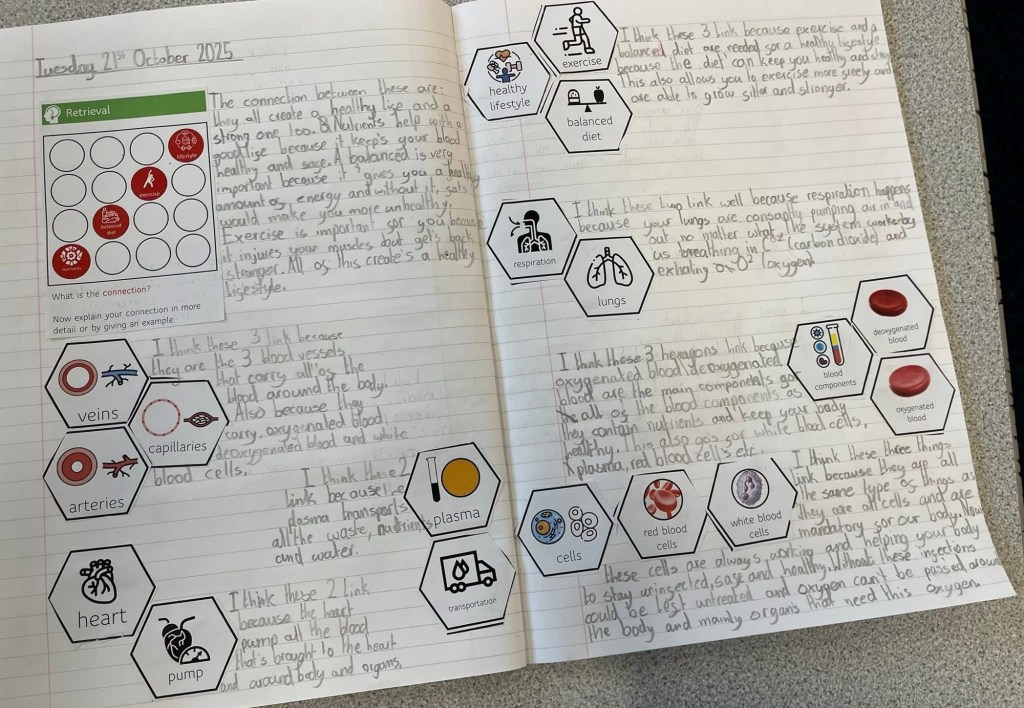 Tuesday 21st October 2025
Retrieval
lifestyle
exercise
balanced
diet
nutrients
What is the connection?
Now explain your connection in more
detail or by giving an example
The connection between these are:
they all create a healthy life and a
strong one too. & Nutrients help with a
good life because it keep's your blood
healthy and safe. A balanced is very
important because it gives you a healthy
amount of, energy and without it, fats
would make you more unhealthy.
Exercise is important for you because
it injures your muscles but gets back
stronger. All of this create's a healthy
lifestyle.
veins
capillaries
arteries
I think these 3 link because
they are the 3 blood vessels
that carry all of the
blood around the body.
Also because they
carry, oxygenated blood,
deoxygenated blood and white
blood cells.
I think these 2
link because
plasma transports
all the waste, nutrients
and water.
plasma
transportation
heart
pump
I think these 2 link
because the heart
pump all the blood
that's brought to the heart
and around body and organs.
exercise
healthy
lifestyle
balanced
diet
I think these 3 link because exercise and a
balanced diet are needed for a healthy lifestyle
because the diet can keep you healthy and strong
This also allows you to exercise more freely and
are able to grow and stronger.
respiration
lungs
I think these two link well because respiration happens
because your lungs are constantly pumping air in and
out no matter what. The system works by
us breathing in (carbon dioxide) and
exhaling (oxygen
deoxygenated
blood
blood
components
oxygenated
blood
I think these 3 hexagons link because
oxygenated blood, deoxygenated
blood are the main components for
all of the blood components as
they contain nutrients and keep your body
healthy. This also goes for white blood cells,
plasma, red blood cell's etc.
cells
red blood
cells
white blood
cells
I think these three things
link because they are all
the same type of things as
they are all cells and are
mandatory for our body. How
these cells are always working and helping your body
to stay uninfected, safe and healthy. Without these infections
could be left untreated and oxygen can't be passed around
the body and mainly organs that need this oxygen